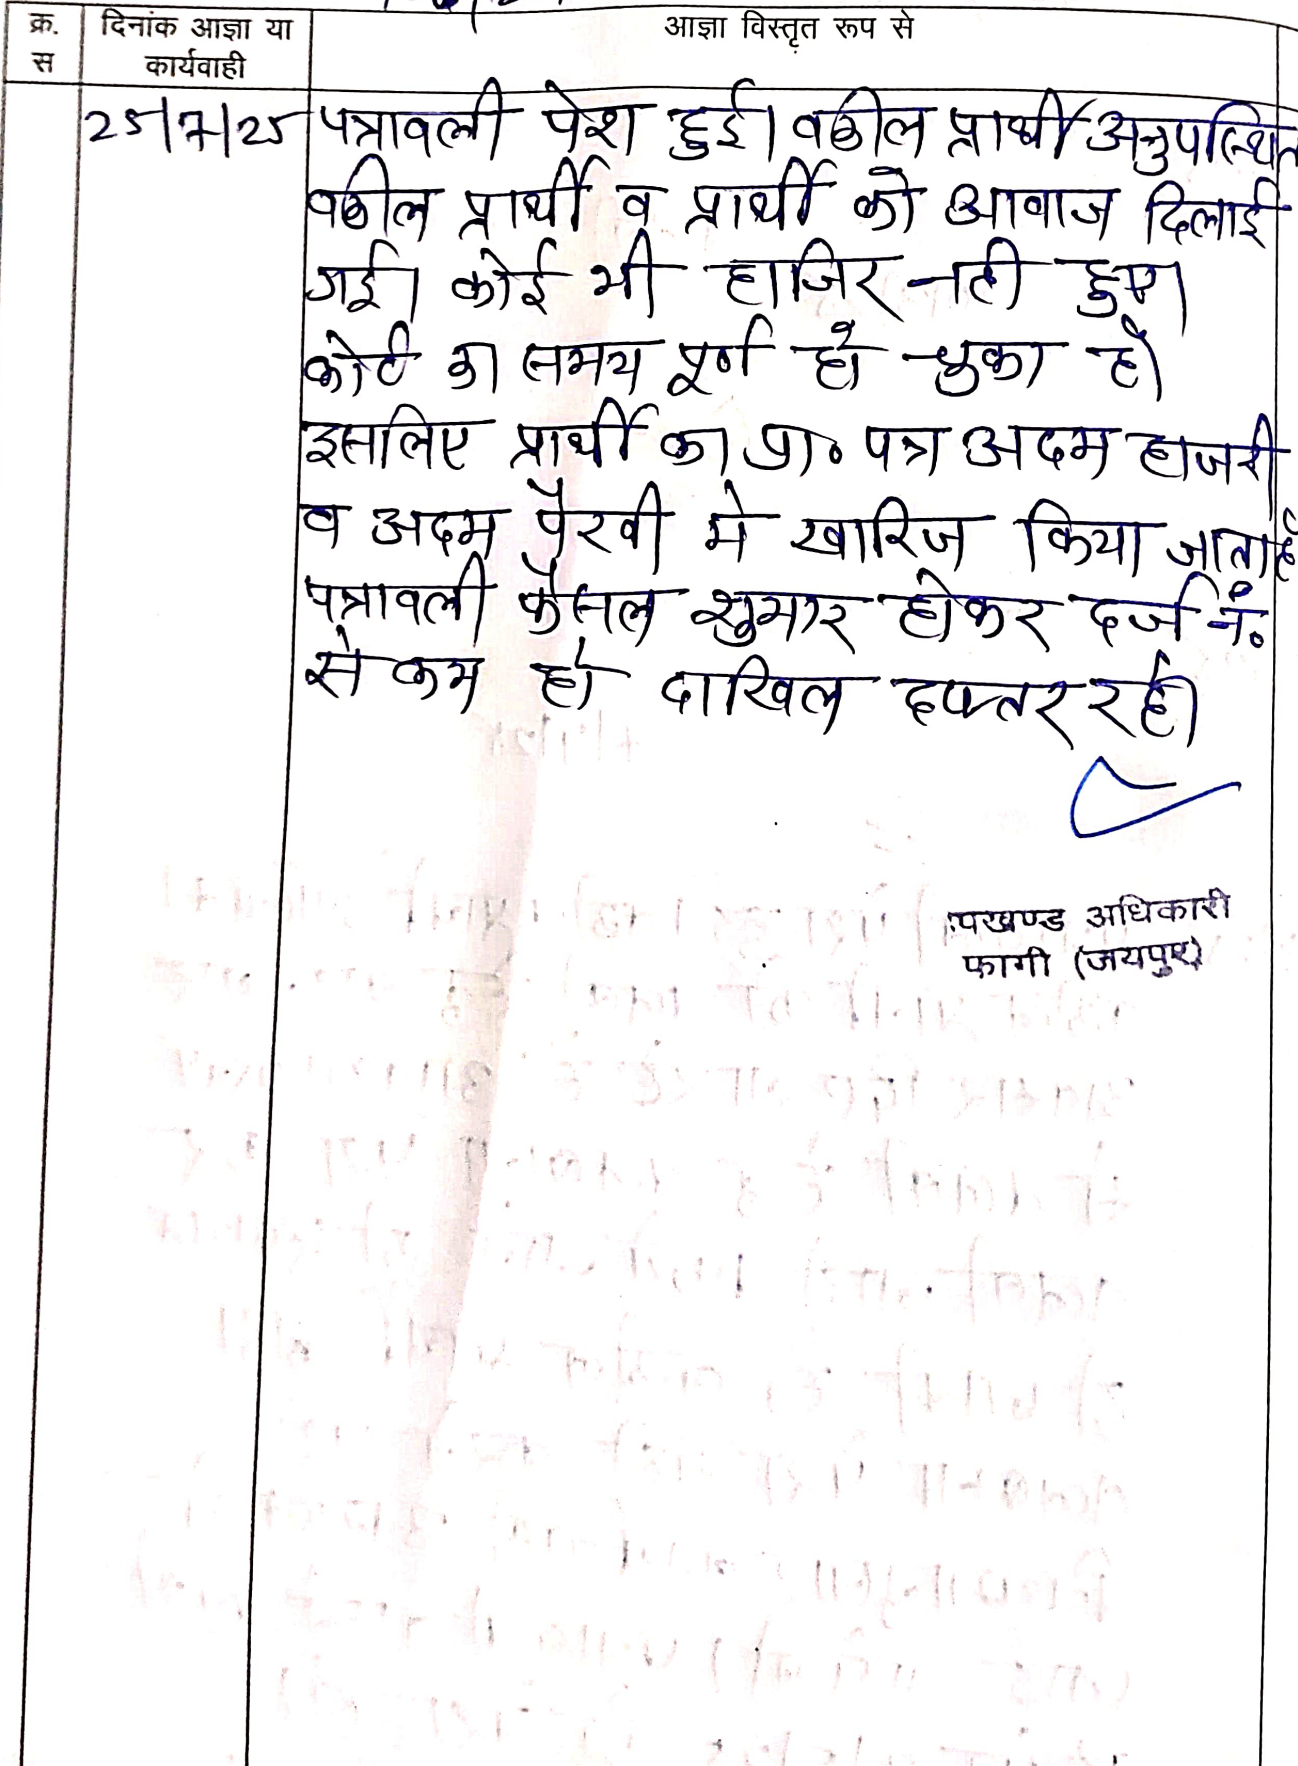 क्र. स
दिनांक आज्ञा या कार्यवाही
आज्ञा विस्तृत रूप से
25/7/25
पत्रावली पेश हुई। वकील प्रार्थी अनुपस्थित
वकील प्रार्थी व प्रार्थी को आवाज दिलाई
गई। कोई भी हाजिर नही हुए।
कोर्ट का समय पूर्ण हो चुका है।
इसलिए प्रार्थी का प्रा. पत्र अदम हाजरी
व अदम पैरवी मे खारिज किया जाता है
पत्रावली फैसल शुमार होकर दर्ज नं.
से कम हो दाखिल दफ्तर रहे।
उपखण्ड अधिकारी
फागी (जयपुर)